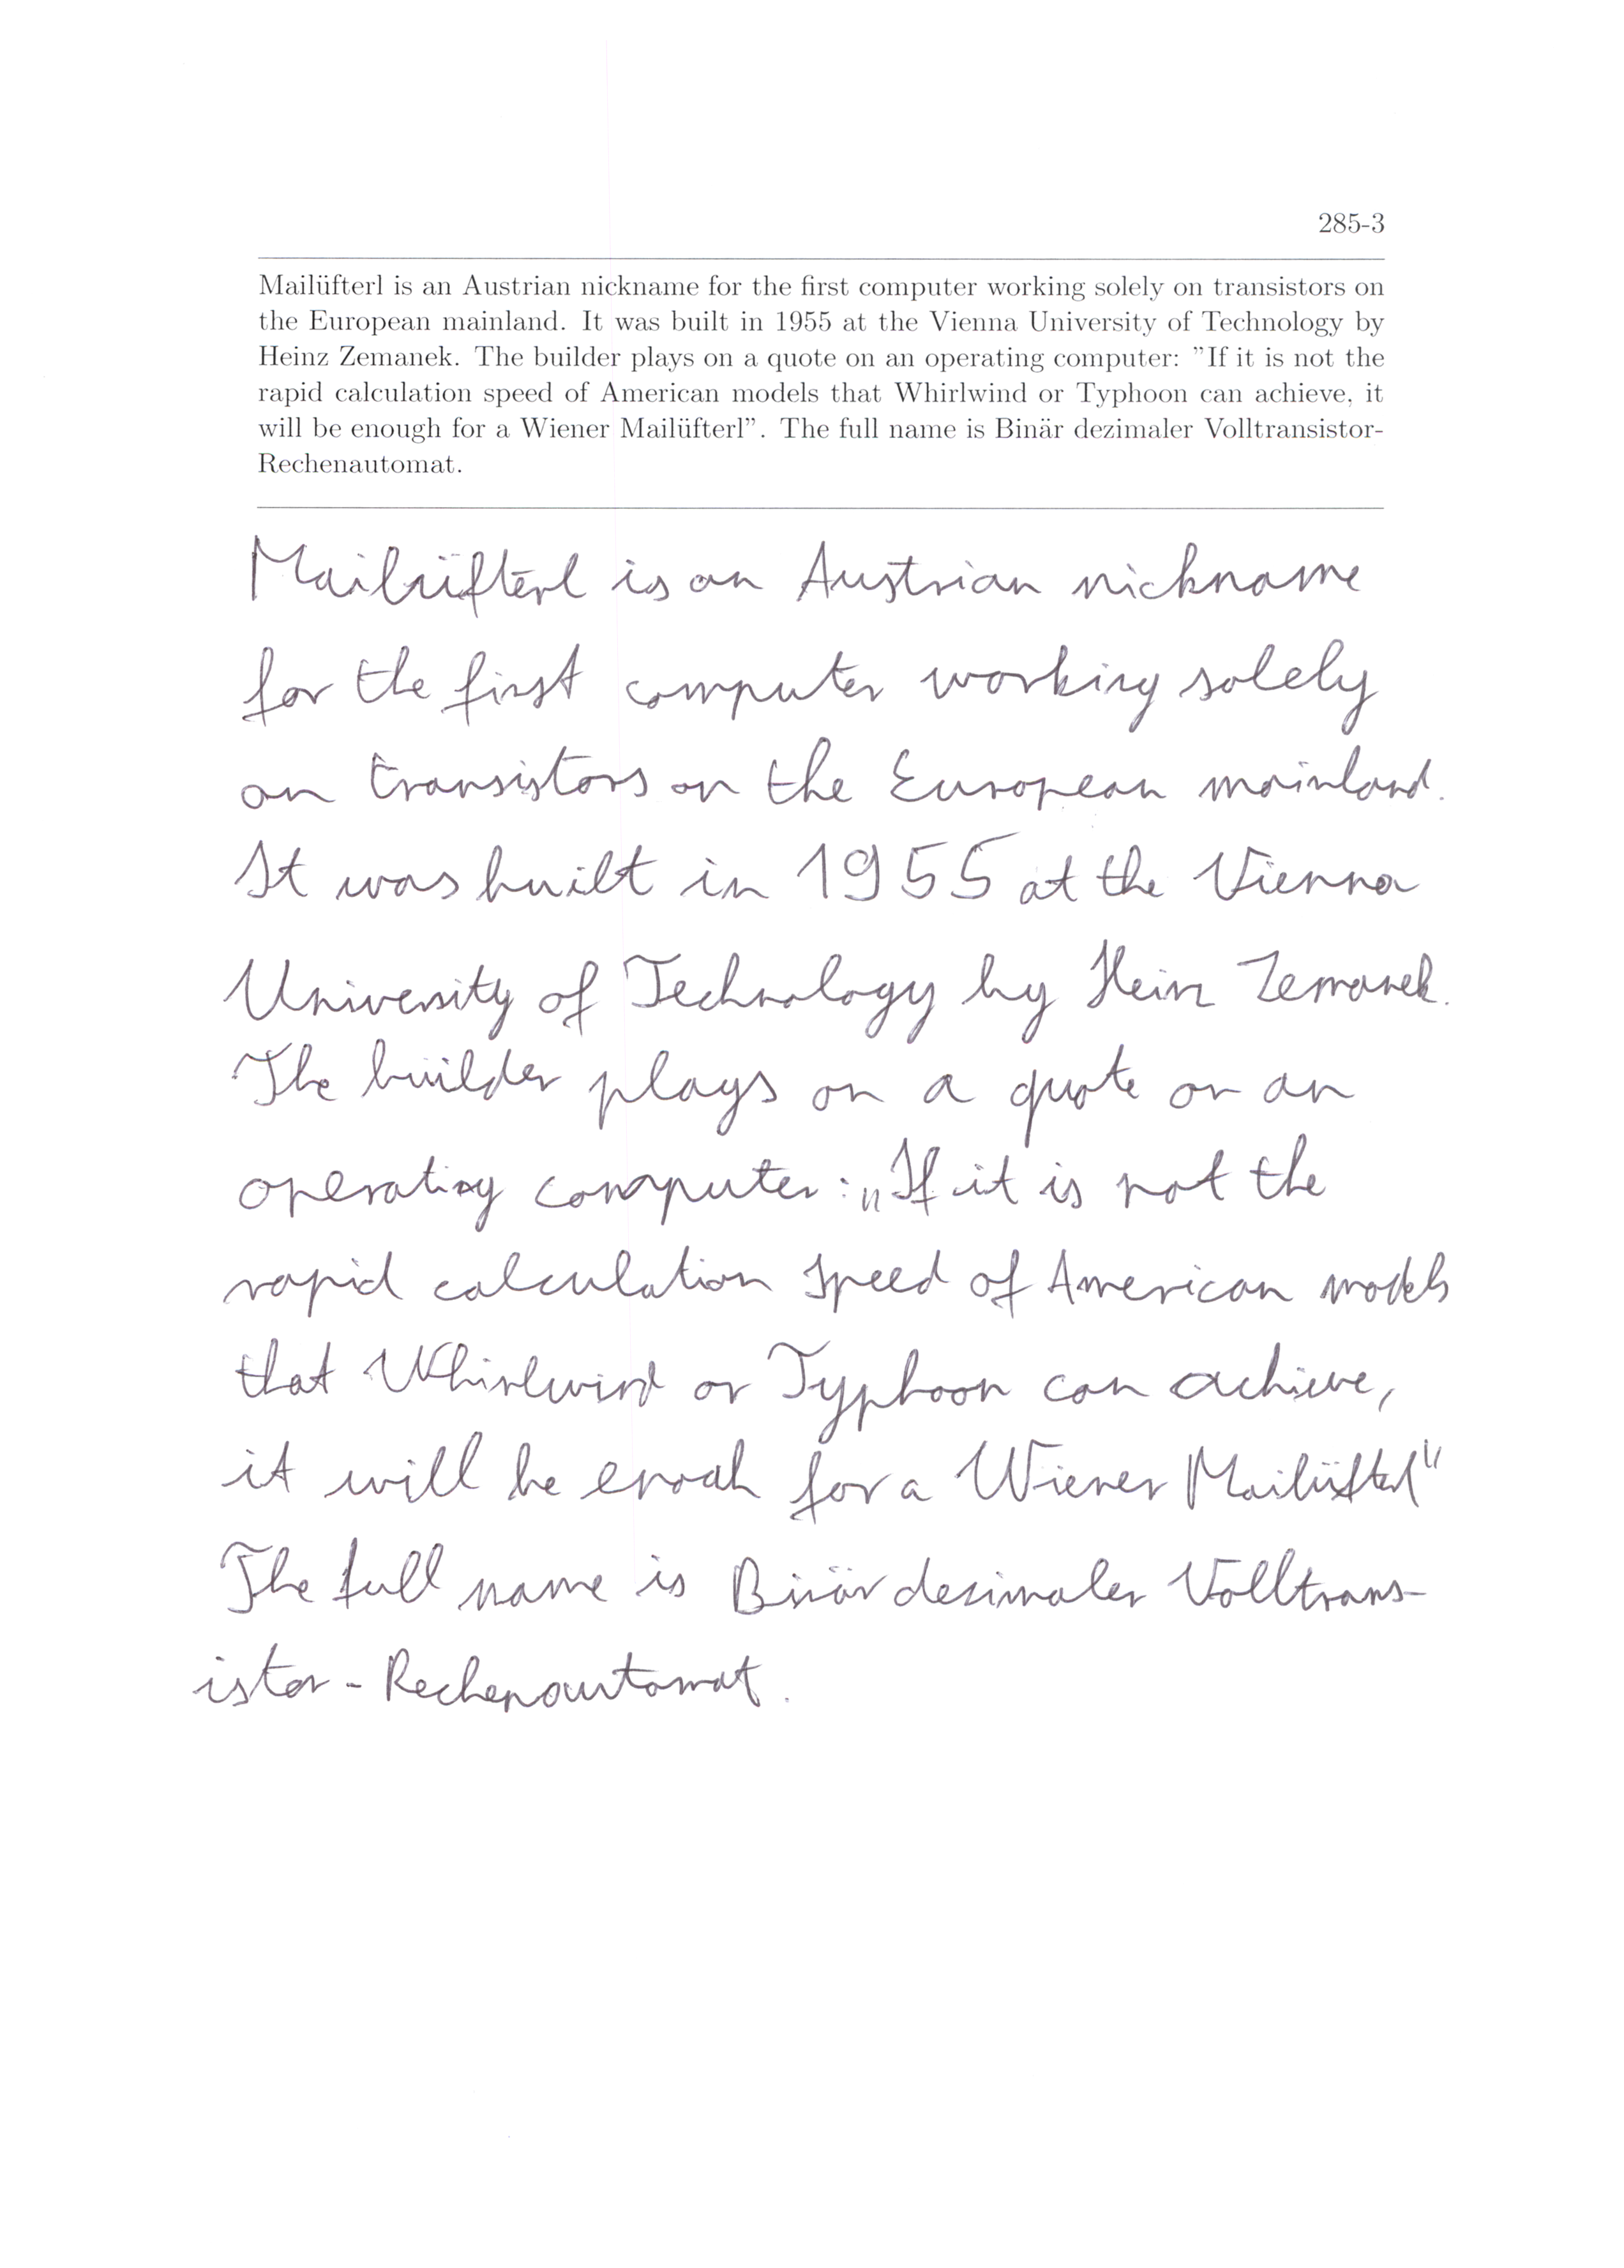 285-3
Mailüfterl is an Austrian nickname for the first computer working solely on transistors on
the European mainland. It was built in 1955 at the Vienna University of Technology by
Heinz Zemanek. The builder plays on a quote on an operating computer: "If it is not the
rapid calculation speed of American models that Whirlwind or Typhoon can achieve, it
will be enough for a Wiener Mailüfterl". The full name is Binär dezimaler Volltransistor-
Rechenautomat.
Mailüfterl is an Austrian nickname
for the first computer working solely
on transistors on the European mainland.
It was built in 1955 at the Vienna
University of Technology by Heinz Zemanek.
The builder plays on a quote on an
operating computer: „If it is not the
rapid calculation speed of American models
that Whirlwind or Typhoon can achieve,
it will be enough for a Wiener Mailüfterl"
The full name is Binär dezimaler Volltrans-
istor-Rechenautomat.